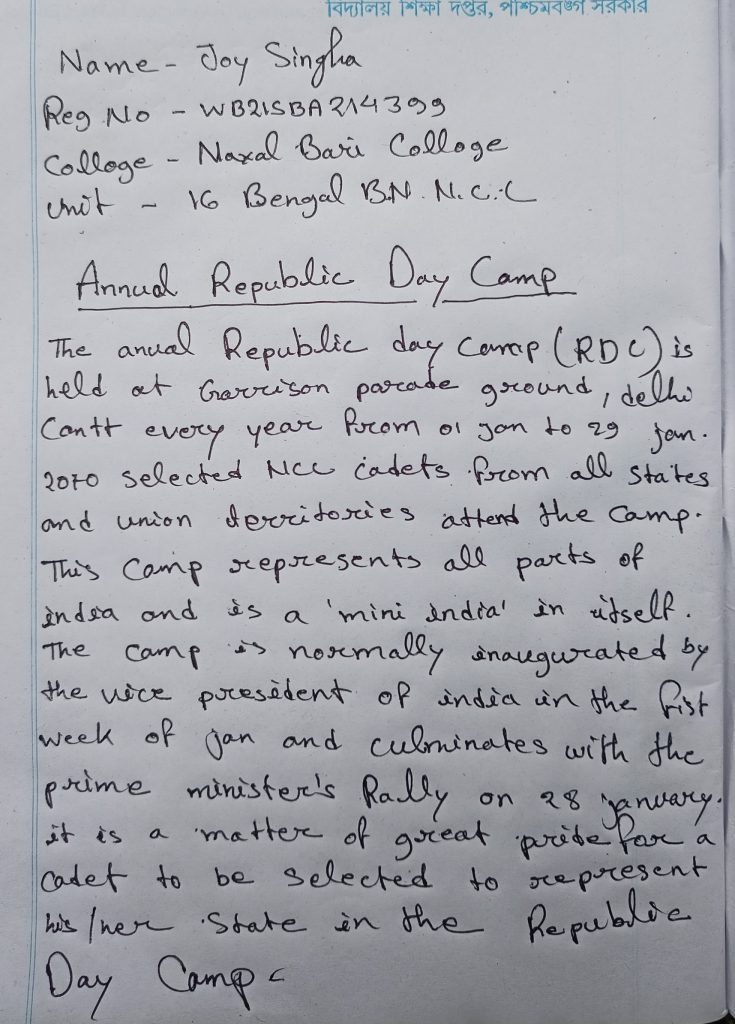 বিদ্যালয় শিক্ষা দপ্তর, পশ্চিমবঙ্গ সরকার
Name - Joy Singha
Reg No - WB21SBA214399
Colloge - Naxal Bari Colloge
Unit - 16 Bengal B.N. N.C.C
Annual Republic Day Camp
The anual Republic day camp (RDC) is
held at Garrison parade ground, delhi
Cantt every year from 01 jan to 29 jan.
2070 selected NCC cadets from all states
and union territories attend the camp.
This camp represents all parts of
india and is a 'mini india' in itself.
The camp is normally inaugurated by
the vice president of india in the fist
week of jan and culminates with the
prime minister's Rally on 28 january.
it is a matter of great pride for a
cadet to be selected to represent
his/her state in the Republic
Day Camp